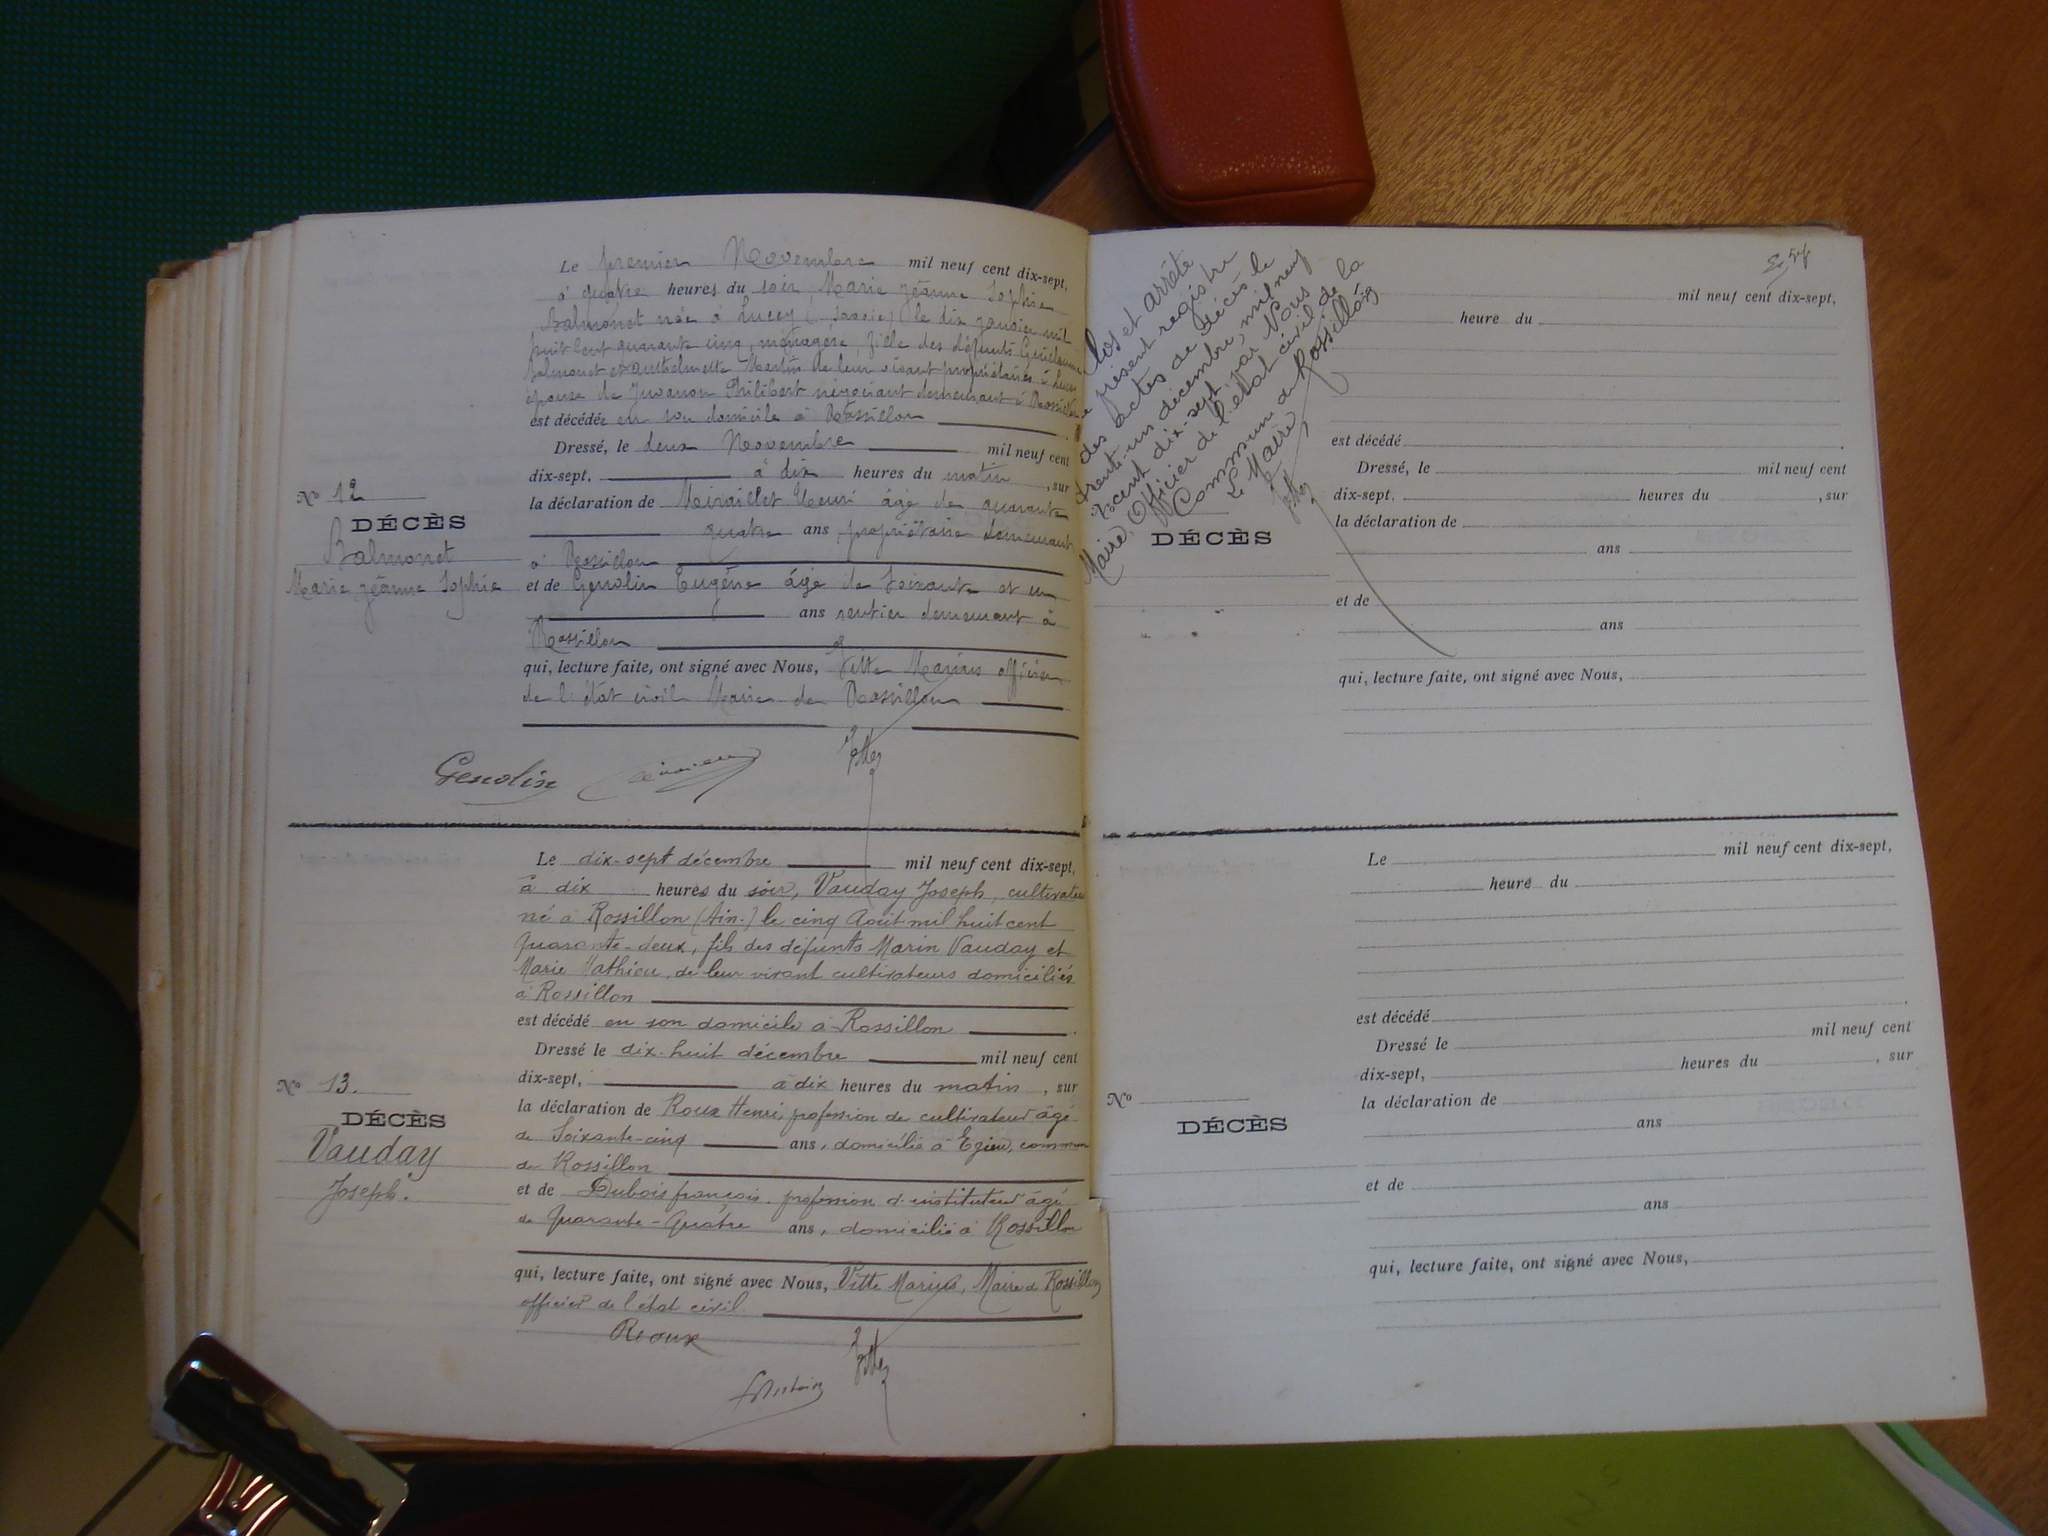 Le premier Novembre mil neuf cent dix-sept,
à quatre heures du soir, Marie jéanne Sophie
Balmonet née à Lucey (Savoie) le dix janvier mil
huit cent quarante cinq, ménagère, fille des défunts Guillaume
Balmonet et Martin de leur vivant propriétaires à Lucey
épouse de Juvanon Philibert négociant demeurant à Rossillon
est décédée en son domicile à Rossillon
Dressé, le deux Novembre mil neuf cent
dix-sept, à dix heures du matin, sur
No 12
la déclaration de Miraillet Henri âgé de quarante
DÉCÈS
quatre ans propriétaire demeurant
Balmonet
à Rossillon
Marie jéanne Sophie
et de Genolin Eugène âgé de Soixante et un
ans rentier demeurant à
Rossillon
qui, lecture faite, ont signé avec Nous, Vitte Marius officier
de l'état civil Maire de Rossillon
Genolin
Vitte
Le dix-sept décembre mil neuf cent dix-sept,
à dix heures du soir, Vauday Joseph, cultivateur
né à Rossillon (Ain.) le cinq Août mil huit cent
Quarante-deux, fils des défunts Marin Vauday et
Marie Mathieu, de leur vivant cultivateurs domiciliés
à Rossillon
est décédé en son domicile à Rossillon
Dressé le dix-huit décembre mil neuf cent
dix-sept, à dix heures du matin, sur
No 13.
la déclaration de Roux Henri, profession de cultivateur âgé
DÉCÈS
de Soixante-cinq ans, domicilié à Egieu, commune
Vauday
de Rossillon
Joseph.
et de Dubois françois profession d'instituteur âgé
de Quarante-Quatre ans, domicilié à Rossillon
qui, lecture faite, ont signé avec Nous, Vitte Marius, Maire de Rossillon
officier de l'état civil
Roux
Vitte
Clos et arrêté
le présent registre
des actes de décès le
trente-un décembre, mil neuf
cent dix-sept, par Nous
Maire, Officier de l'état civil de la
Commune de Rossillon
Le Maire,
Vitte
mil neuf cent dix-sept,
heure du
est décédé
Dressé, le mil neuf cent
dix-sept, heures du , sur
la déclaration de
DÉCÈS
ans
et de
ans
qui, lecture faite, ont signé avec Nous,
Le mil neuf cent dix-sept,
heure du
est décédé
Dressé le mil neuf cent
dix-sept, heures du , sur
No
la déclaration de
DÉCÈS
ans
et de
ans
qui, lecture faite, ont signé avec Nous,